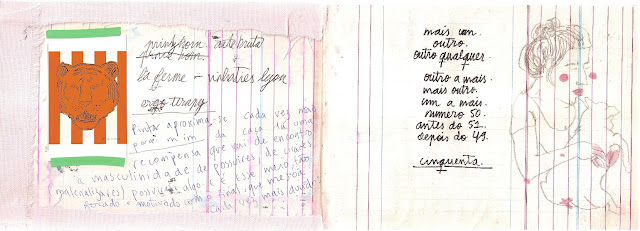 prinzhorn. arte bruta
la ferme - lyon
Pintar aproxima-se cada vez mais
para mim da caça há uma
recompensa que vai de encontro
à masculinidade de possuires de
possuir algo e é esse meio tão
focado e motivado com o final que
cada vez mais
mais um.
outro.
outro qualquer.
outro a mais.
mais outro.
um a mais.
numero 50.
antes do 51.
depois do 49.
cinquenta.